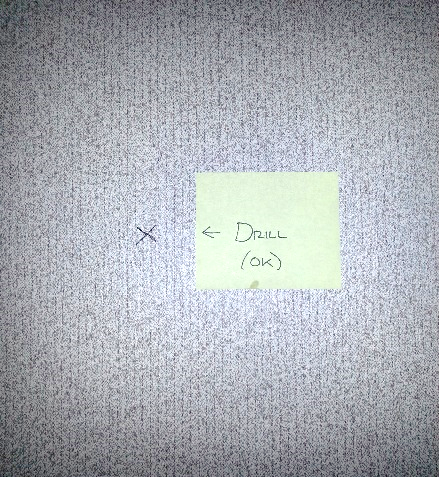 X ← DRILL
(OK)